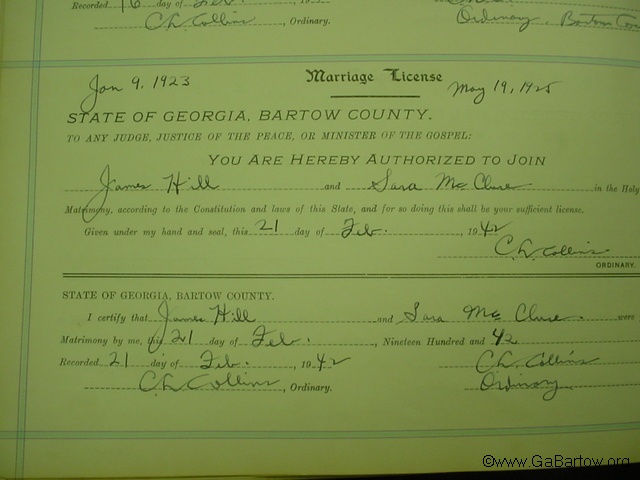 Recorded 16 day of Feb. , 19
C.L. Collins , Ordinary.
Ordinary, Bartow Coun
Jan 9, 1923 Marriage License May 19, 1925
STATE OF GEORGIA, BARTOW COUNTY.
TO ANY JUDGE, JUSTICE OF THE PEACE, OR MINISTER OF THE GOSPEL:
YOU ARE HEREBY AUTHORIZED TO JOIN
James Hill and Sara McClure in the Holy
Matrimony, according to the Constitution and laws of this State, and for so doing this shall be your sufficient license.
Given under my hand and seal, this 21 day of Feb. , 1942
C.L. Collins
ORDINARY.
STATE OF GEORGIA, BARTOW COUNTY.
I certify that James Hill and Sara McClure. were
Matrimony by me, this 21 day of Feb. , Nineteen Hundred and 42
Recorded 21 day of Feb. , 1942 C.L. Collins
C.L. Collins , Ordinary. Ordinary
©www.GaBartow.org